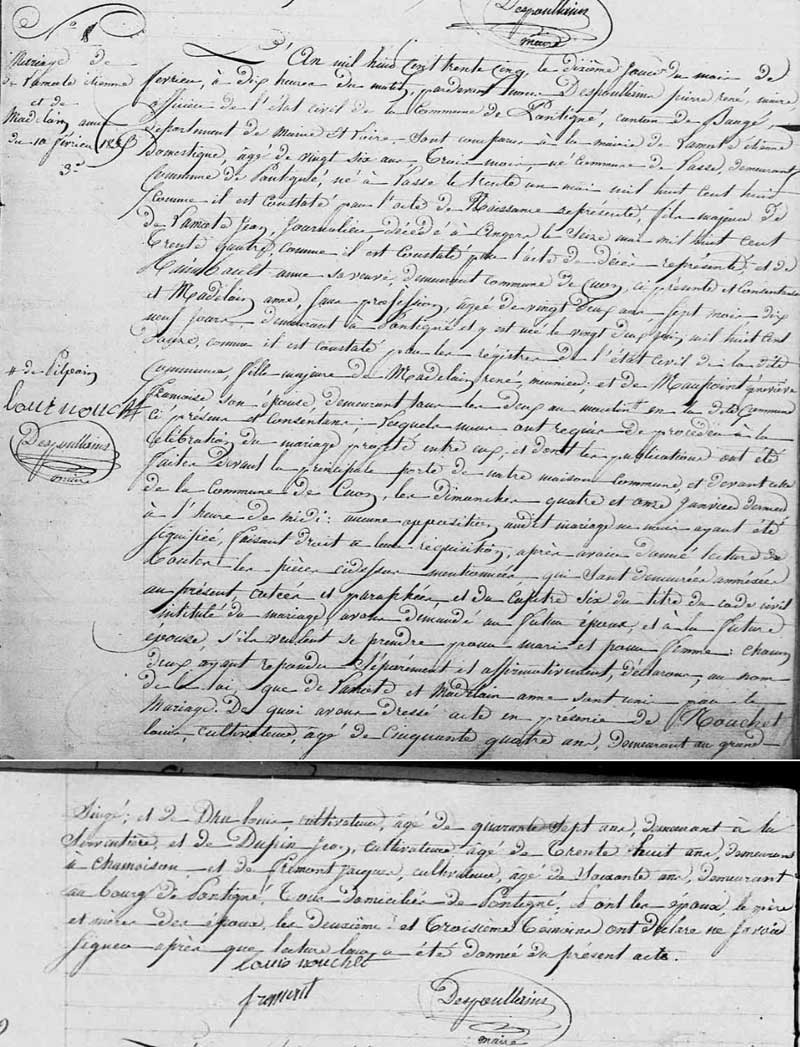 Despoullains
maire
N° 8
Mariage de
de Lamotte etienne
et de
Madelain anne
du 10 février 1835
3e
L'An mil huit Cent trente Cinq, le dixième jour du mois de
février, à dix heures du matin, pardevant nous Despoullains pierre rené, maire
officier de l'état civil de la Commune de Pontigné, canton de Baugé,
département de maine et Loire. Sont comparus à la mairie de Lamotte etienne
Domestique, âgé de vingt six ans trois mois, né Commune de Vasse, demeurant
Commune de Pontigné, né à Vasse le trente un mai mil huit cent huit
Comme il est constaté par l'acte de Naissance représenté, fils majeur de
de Lamotte Jean, Journalier décédé à Angers le Seize mai mil huit cent
trente quatre, comme il est Constaté par l'acte de décès représenté, et de
anne sa veuve, demeurant commune de Cuon, ci présente et Consentante
et Madelain anne, sans profession, âgée de vingt deux ans sept mois dix
neuf jours, demeurant à Pontigné et y est née le vingt deux juin mil huit cent
douze, comme il est constaté par les régistres de l'état civil de la dite
Commune, fille majeure de Madelain rené, meunier, et de Maupoint geneviève
framoise son épouse, demeurant tous les deux au moulin # en la dite Commune
Ci présens et Consentans; lesquels nous ont requis de procéder à la
Célébration du mariage projeté entre eux, et dont les publications ont été
faites devant la principale porte de notre maison Commune, et devant celle
de la Commune de Cuon, les dimanches quatre et onze Janvier dernier
à l'heure de midi: aucune opposition audit mariage ne nous ayant été
signifiée, faisant droit à leur réquisition, après avoir donné lecture de
toutes les pièces cidessus mentionnées, qui sont demeurées annexées
au présent, cotées et paraphées et du Capitre six du titre du code civil
intitulé du mariage, avons demandé au futur epoux, et a la future
epouse, s'ils veulent se prendre pour mari et pour femme: chacun
deux ayant repondu Séparement et affirmativement, déclarons, au nom
de la loi, que de Lamotte et Madelain anne sont unis par le
Mariage. De quoi avons dressé acte en présence de Nouchet
louis, cultivateur, âgé de cinquante quatre ans, demeurant au grand
# de
louis nouchet
Despoullains
maire
Singé; et de Dru louis cultivateur, âgé de quarante Sept ans, demeurant à la
et de Dupin Jean, cultivateur âgé de trente huit ans, demeurant
à Chamoison, et de fremont Jacques, cultivateur, âgé de Soixante ans, demeurant
au bourg de Pontigné, tous domiciliés de Pontigné, dont les epoux, le père
et mères des époux, les deuxième et troisieme témoins ont déclaré ne savoir
signer après que lecture leur a été donnée du présent acte.
louis nouchet
fremont
Despoullains
maire